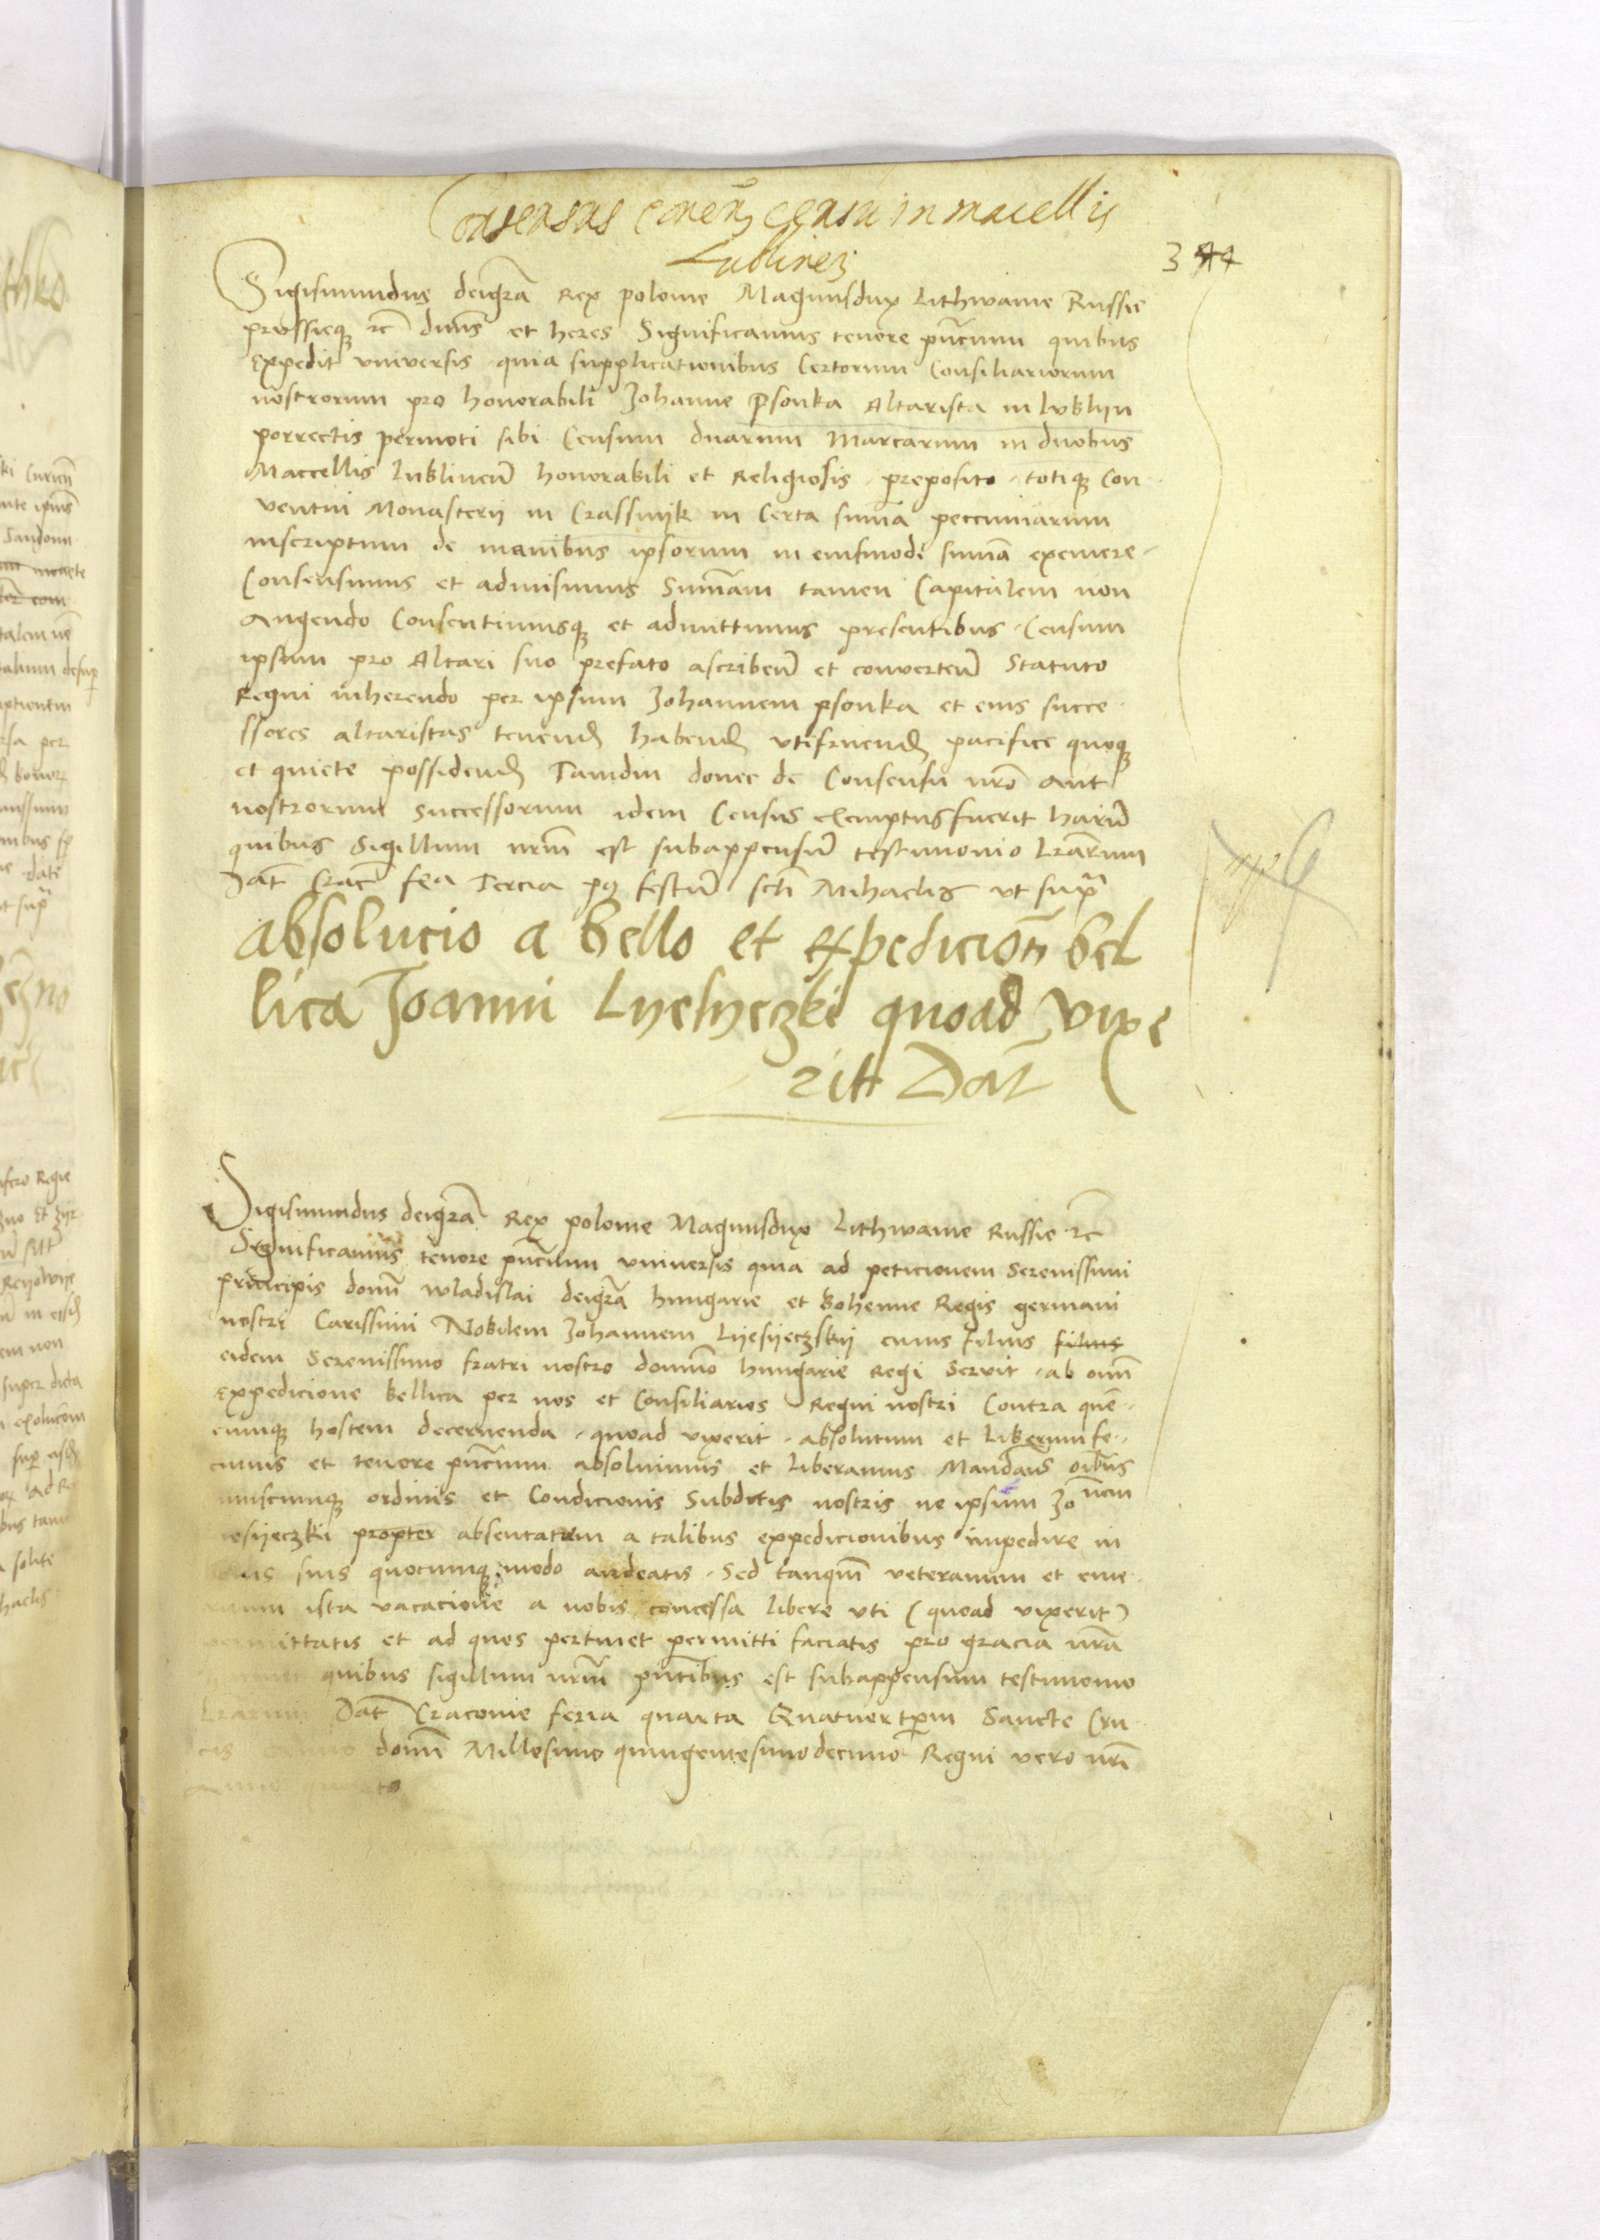 Consensus emen censu in macellis
Lublinen
344
Sigismundus deigrā Rex polonie Magnusdux Lithwanie Russie
prussieq; rc dnns et heres Significamus tenore pntium quibus
Expedit vniversis quia supplicationibus Certorum Consiliariorum
nostrorum pro honorabili Johanne Psonka Altarista in lublyn
porrectis permoti sibi Censum duarum Marcarum in duobus
Maccellis lublinen honorabili et Religiosis preposito totiq; Con
ventui Monasterii in Crassnyk in Certa suma peccuniarum
inscriptum de manibus ipsorum in eiusmodi sumā exemere
Consensimus et admisimus Sumam tamen Capitalem non
Augendo Consentimusq; et admittimus presentibus Censum
ipsum pro Altari suo prefato ascriben et converten Statuto
Regni inherendo per ipsum Johannem psonka et eius succe
ssores altaristas tenend habend vtifruend pacifice quoq;
et quiete possidend Tamdiu donec de Consensu nro Aut
nostrorum successorum idem Census exemptusfuerit harū
quibus Sigillum nrm est subappensū testimonio lrarum
Dat Crac feā Tercia pq festū scti Mihaelis vt supra
absolucio a bello et expedicion bel
lica Joanni Lyesyeczki quoad vixe
rit Dat
Sigismundus deigrā Rex polonie Magnusdux Lithwanie Russie rc
Significamus tenore pntium vniversis quia ad peticionem Serenissimi
principis domi wladislai deigrā hungarie et bohemie Regis germani
nostri Carissimi Nobilem Johannem Lyesyeczskij cuius filius filius
eidem Serenissimo fratri nostro domino hungarie Regi Servit ab omi
Expedicione bellica per nos et Consiliarios Regni nostri Contra quē
cumq; hostem decernenda quoad vixerit absolutum et Liberumfe
cimus et tenore pntium absoluimus et liberamus Mandans oibus
cuiuscumq; ordinis et Condicionis Subditis nostris ne ipsum Jo nem
lyesyeczki propter absentatiem a talibus expedicionibus impedire in
suis quocumq; modo audeatis Sed tanquā veteranum et eme
ritum ista vacacione a nobis concessa libere vti (quoad vixerit)
permittatis et ad quos pertinet permitti faciatis pro gracia nrā
quibus sigillum nrm pntibus est subappensum testimonio
Lrarum Dat Cracovie feria quarta Quatuortpm Sancte Cru
cis Anno domi Millesimo quingentesimodecimo Regni vero nri
Anno quarto